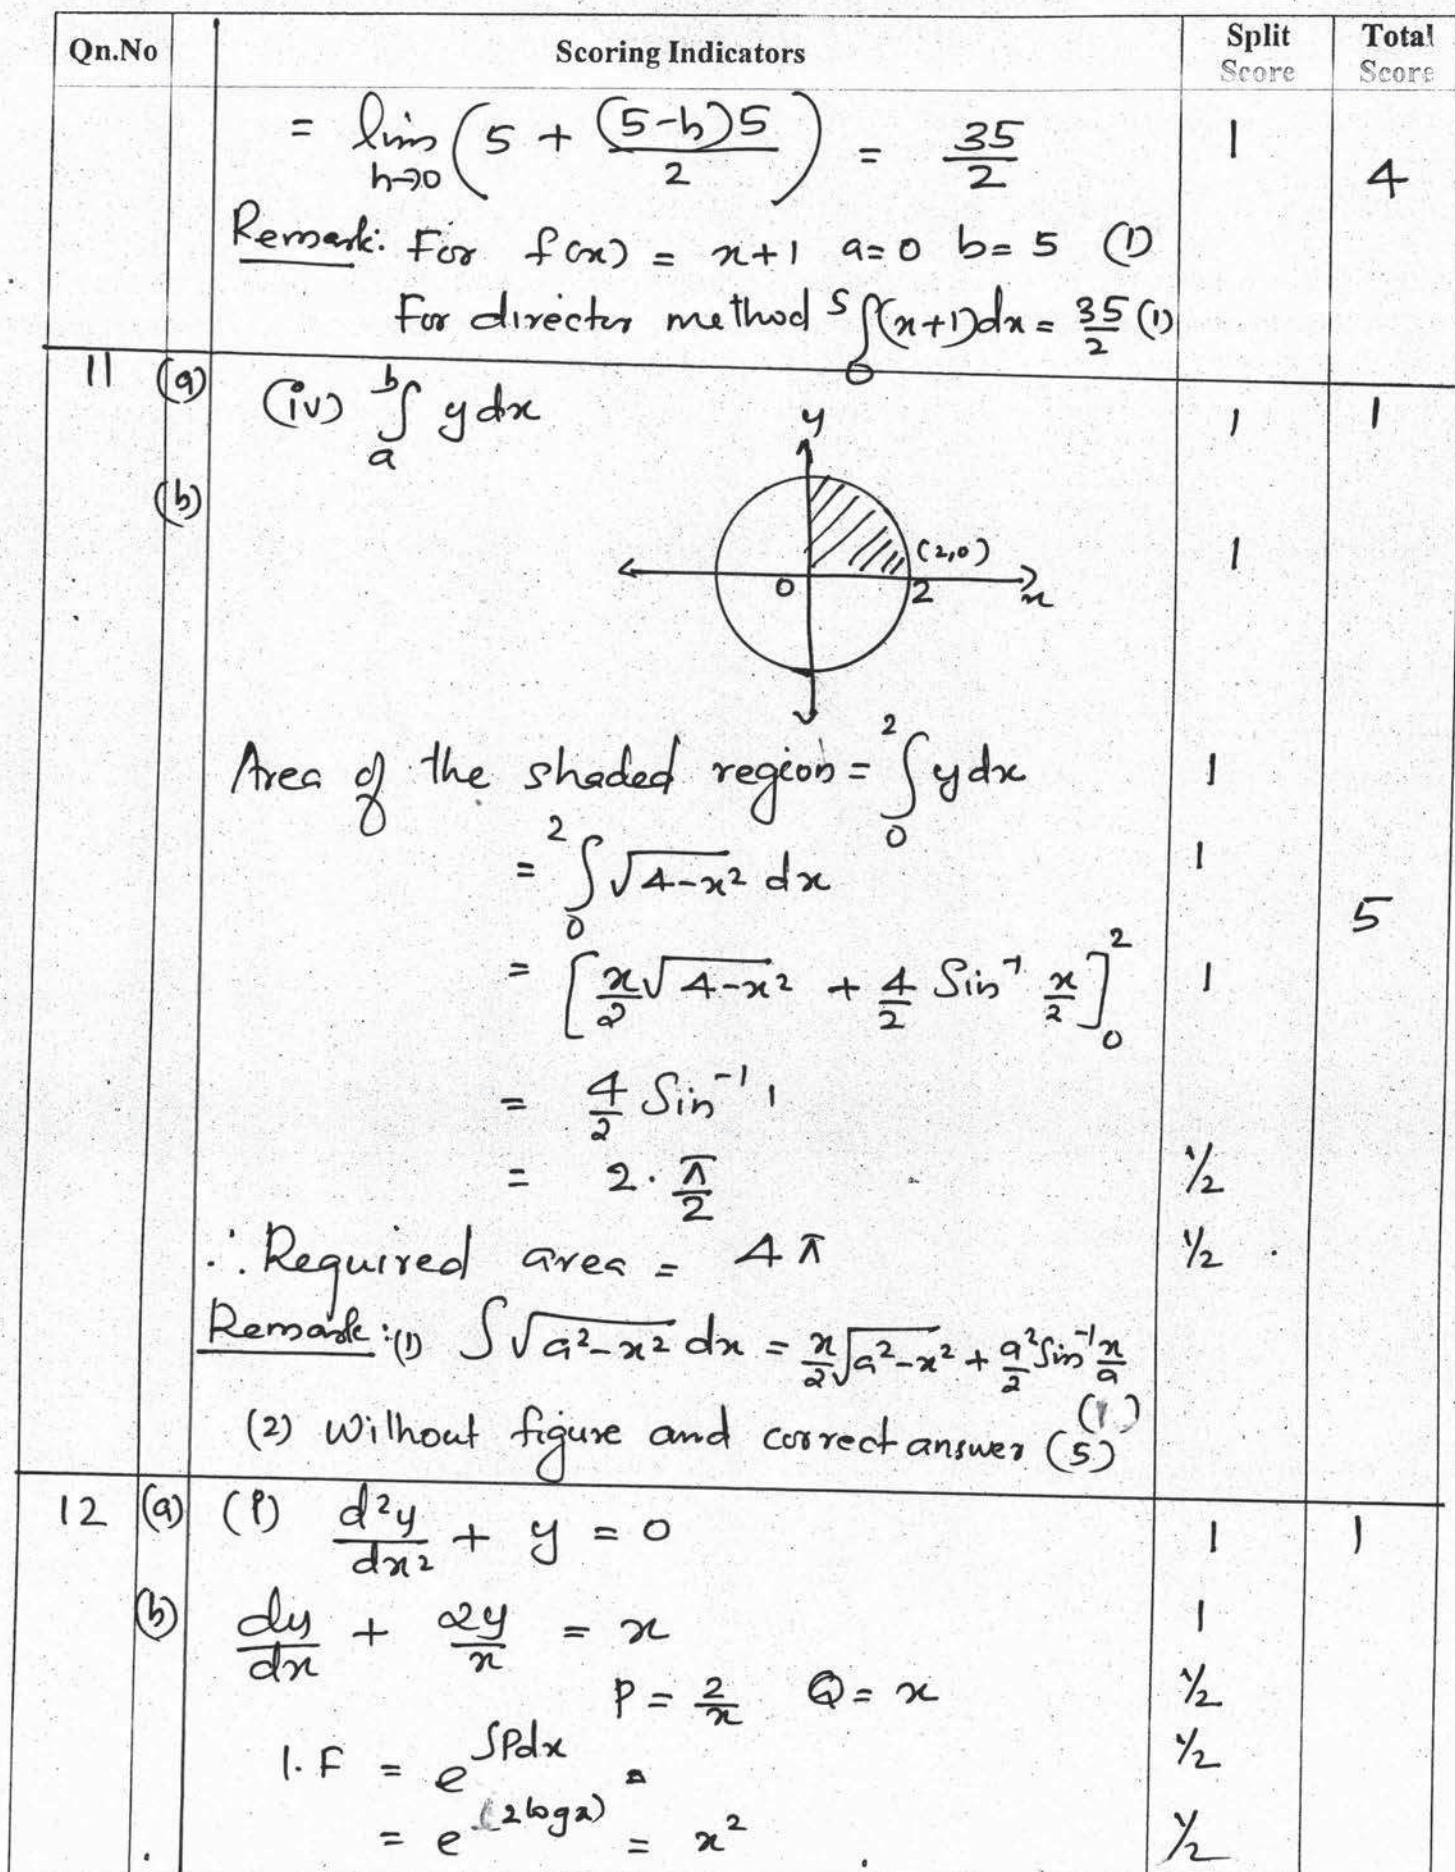 Qn.No Scoring Indicators Split Score Total Score
= lim h→0 (5 + (5-h)5/2) = 35/2 1 4
Remark: For f(x) = x+1 a=0 b=5 (1)
For director method ∫₀⁵(x+1)dx = 35/2 (1)
11 (a) (iv) ∫ₐᵇ y dx 1 1
(b) y
(2,0) 1
0 2 x
Area of the shaded region = ∫₀² y dx 1
= ∫₀² √(4-x²) dx 1
5
= [x/2 √(4-x²) + 4/2 Sin⁻¹ x/2]₀² 1
= 4/2 Sin⁻¹ 1
= 2 · π/2 ½
∴ Required area = 4π ½
Remark: (1) ∫√(a²-x²) dx = x/2 √(a²-x²) + a²/2 Sin⁻¹ x/a
(1)
(2) Without figure and correct answer (5)
12 (a) (i) d²y/dx² + y = 0 1 1
(b) dy/dx + 2y/x = x 1
P = 2/x Q = x ½
I.F = e^∫Pdx = ½
= e^(2logx) = x² ½